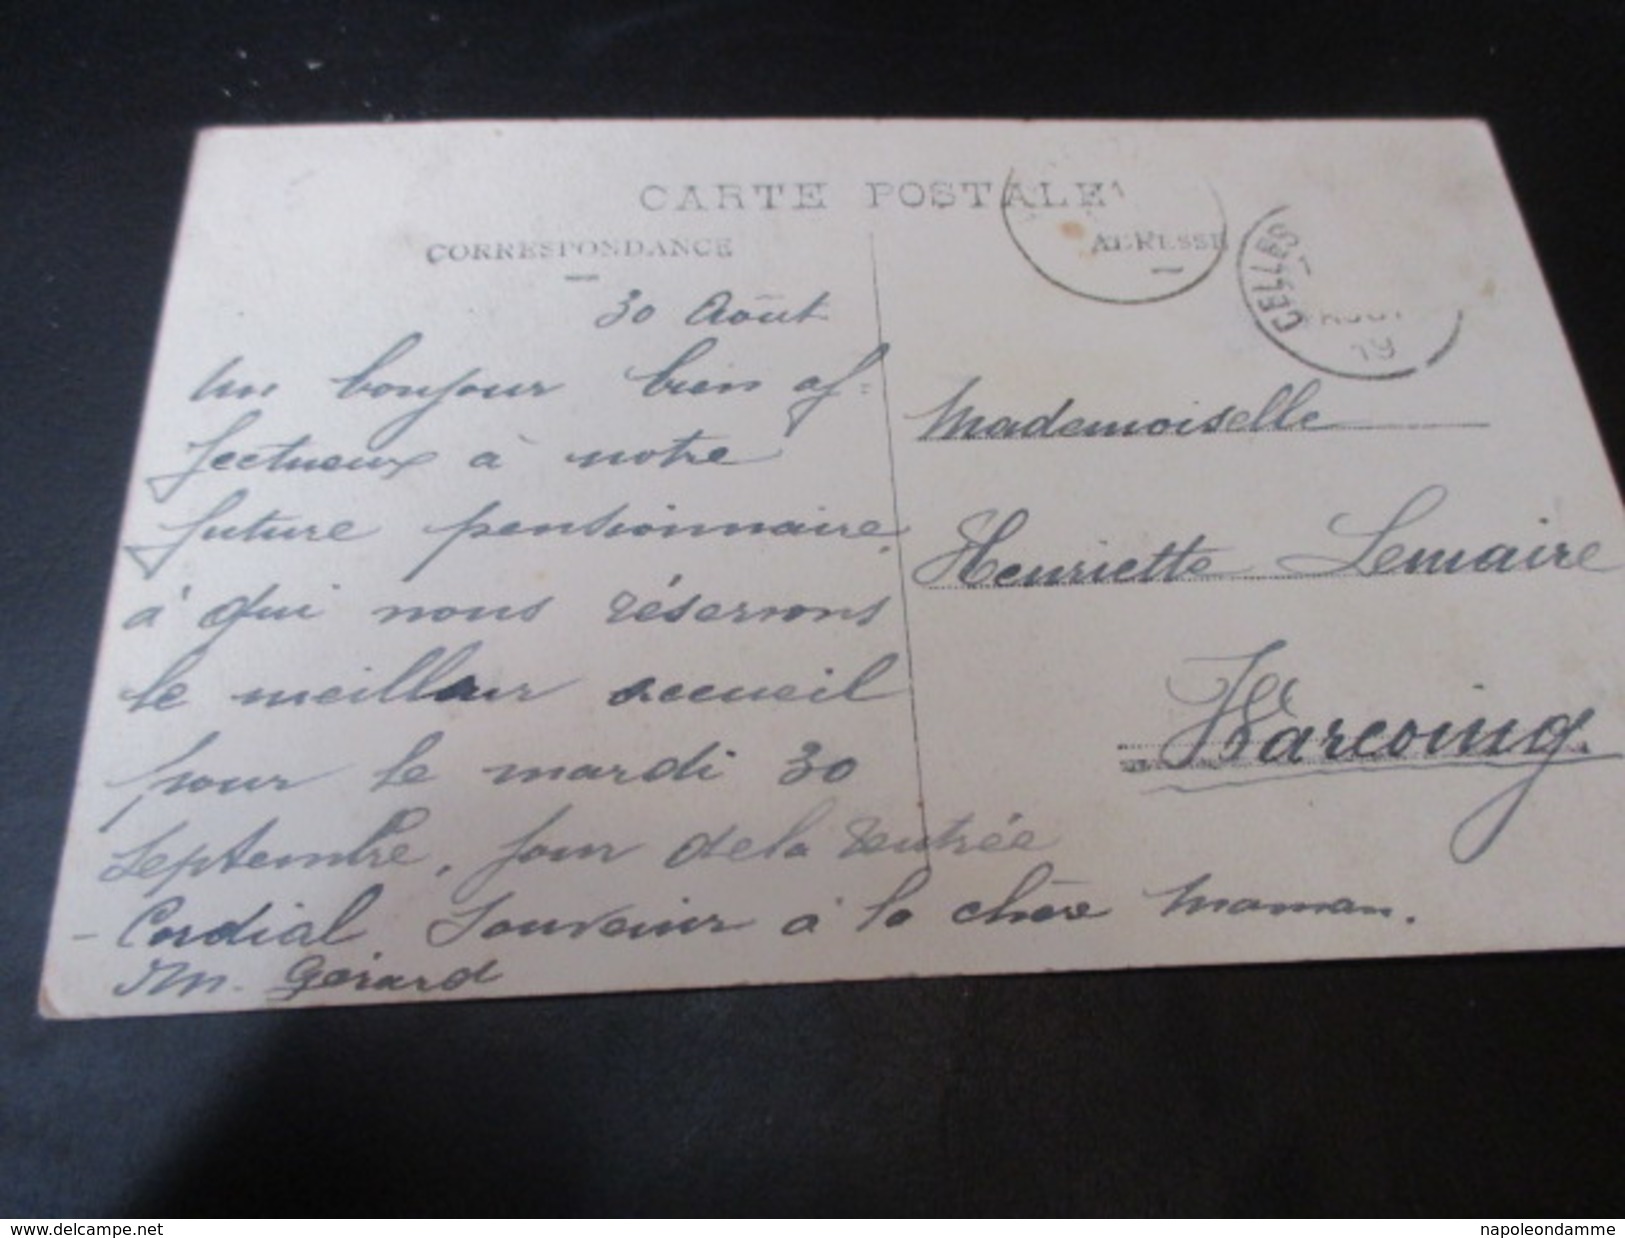 CARTE POSTALE
CORRESPONDANCE
ADRESSE
CELLES
AOUT
19
30 Août
Un bonjour bien af-
fectueux à notre
future pensionnaire,
à qui nous réservons
le meilleur accueil
pour le mardi 30
Septembre, jour de la rentrée
- Cordial souvenir à la chère maman.
M. Gérard
Mademoiselle
Henriette Lemaire
Warcoing
www.delcampe.net
napoleondamme